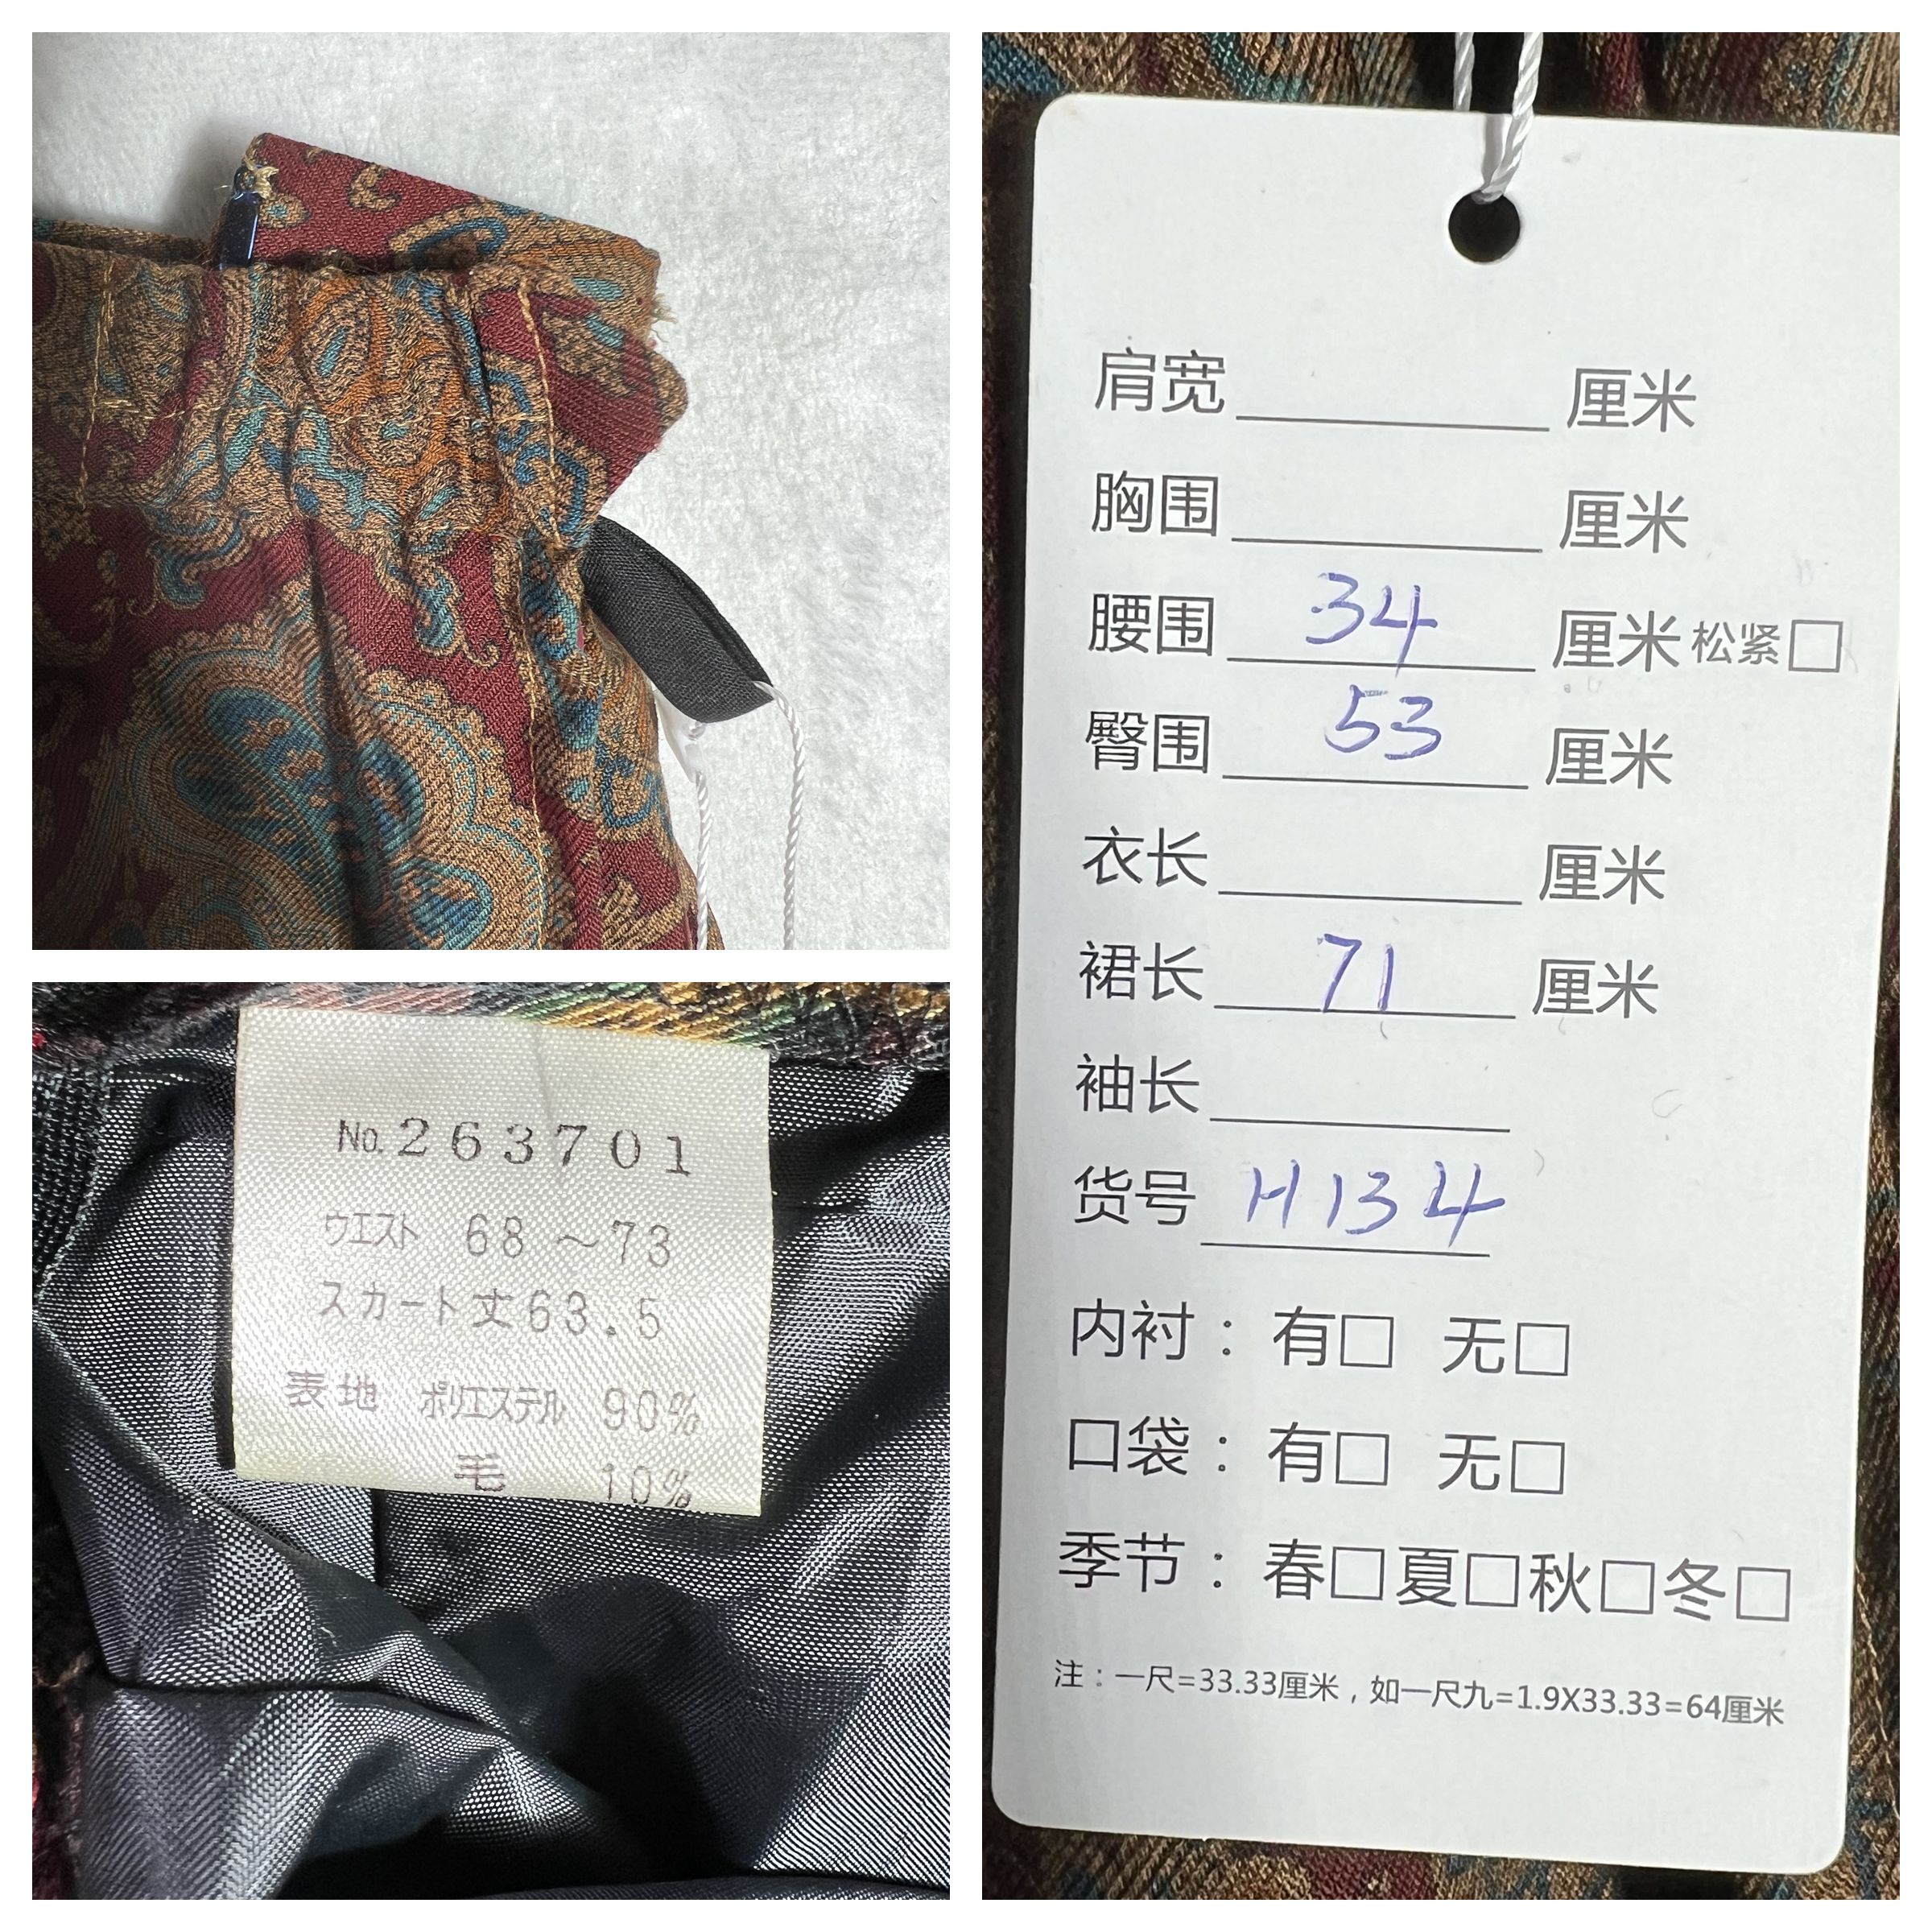 No.263701
ウエスト 68～73
スカート丈63.5
表地 ポリエステル 90%
毛 10%
肩宽 厘米
胸围 厘米
腰围 34 厘米 松紧□
臀围 53 厘米
衣长 厘米
裙长 71 厘米
袖长
货号 H134
内衬：有□ 无□
口袋：有□ 无□
季节：春□夏□秋□冬□
注：一尺=33.33厘米，如一尺九=1.9X33.33=64厘米